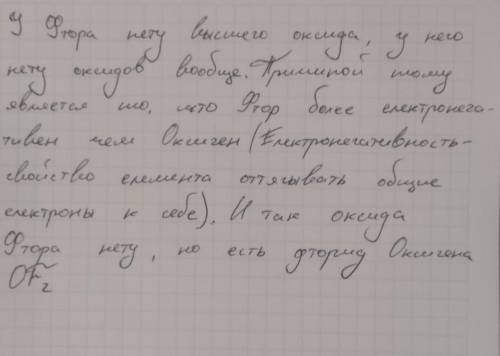 У Фтора нету высшего оксида, у него
нету оксидов вообще. Причиной тому
является то, что Фтор более електронега-
тивен чем Оксиген (Електронегативность-
свойство елемента оттягывать общие
електроны к себе). И так оксида
Фтора нету, но есть фторид Оксигена
OF₂